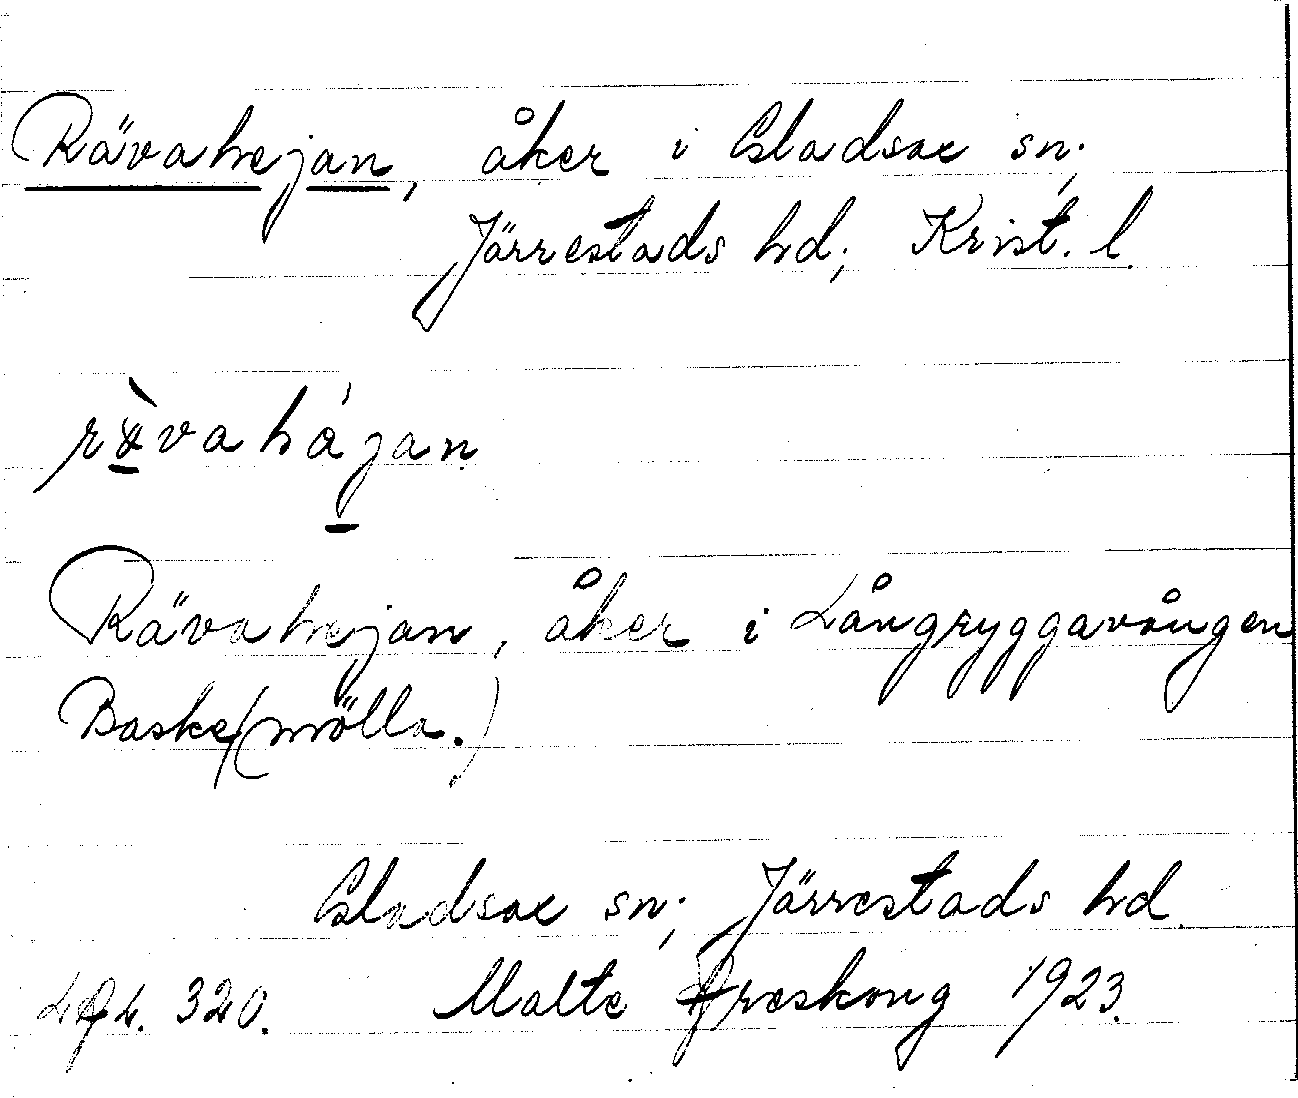 Rävahejan, åker i Gladsax sn;
Järrestads hd; Krist. l.
rävahájan
Rävahejan, åker i Långryggavången
Baske (mölla.)
Gladsax sn; Järrestads hd.
320. Malte Areskoug 1923.